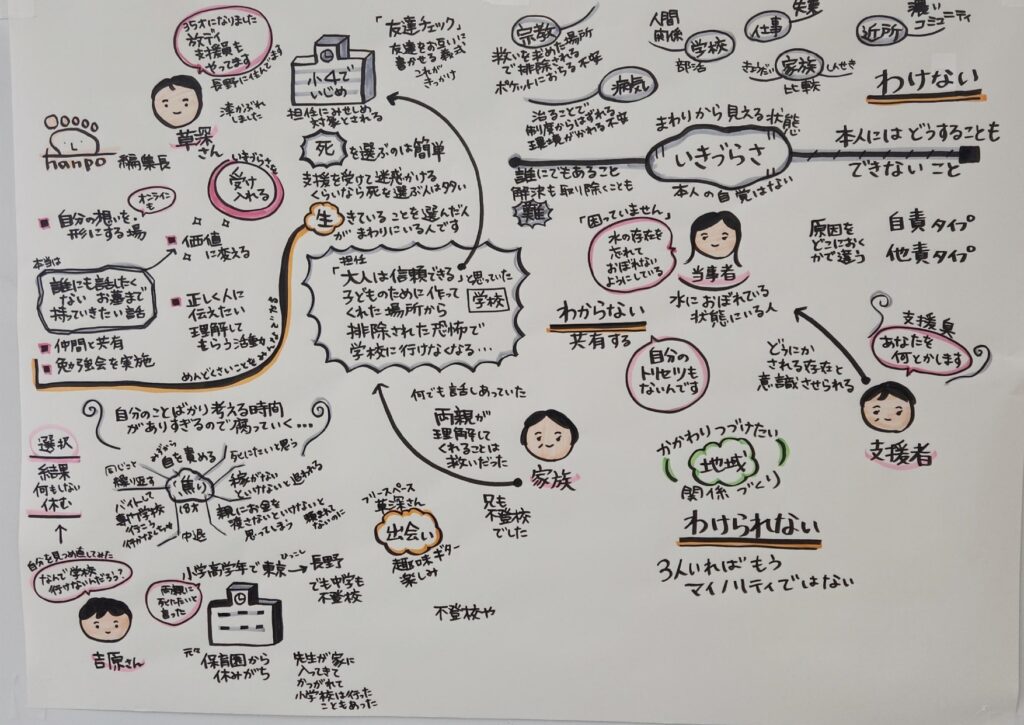 35才になりました
放デイ
支援員も
やってます
長野に住んでます
漆かぶれ
しました
草深さん
hanpo 編集長
「友達チェック」
友達をお互いに
書かせる儀式
これが
きっかけ
小4で
いじめ
担任にみせしめ
対象とされる
死を選ぶのは簡単
支援を受けて迷惑かける
くらいなら死を選ぶ人は多い
生きていることを選んだ人
がまわりにいる人です
いきづらさを
受け
入れる
オンライン
も
自分の想いを
形にする場
価値
に変える
本当は
誰にも話したく
ない お墓まで
持っていきたい話
正しく人に
伝えたい
理解して
もらう活動
仲間と共有
勉強会を実施
めんどくさいことをみんなで
担任
「大人は信頼できる」と思っていた
子どものために作って
くれた場所から
排除された恐怖で
学校に行けなくなる…
学校
宗教
救いを求めた場所
で排除される
ポケットにおちる不安
病気
治ることで
制度からはずれる
環境がかわる不安
人間
関係
学校
部活
仕事
失業
きょうだい
家族
比較
近所
濃い
コミュニティ
わけない
まわりから見える状態
いきづらさ
本人の自覚はない
本人にはどうすることも
できないこと
誰にでもあること
解決も取り除くことも
難
「困っていません」
水の存在を
忘れて
おぼれない
ようにしている
当事者
水におぼれている
状態にいる人
原因を
どこにおく
かで違う
自責タイプ
他責タイプ
わからない
共有する
自分の
トリセツも
ないんです
支援臭
あなたを
何とかします
どうにか
される存在と
意識させられる
支援者
かかわりつづけたい
地域
関係づくり
わけられない
3人いればもう
マイノリティではない
何でも話しあっていた
両親が
理解して
くれることは
救いだった
家族
兄も
不登校
でした
フリースペース
草深さん
出会い
趣味ギター
楽しみ
不登校や
自分のことばかり考える時間
がありすぎるので腐っていく…
選択
結果
何もしない
休む
焦り
18才
みずから
自を責める
死にたいと思う
同じこと
繰り返す
稼がない
といけないと追われる
バイトして
専門学校
行こう
行かなくちゃ
中退
親にお金を
渡さないといけないと
思ってしまう
頼まれて
ないのに
自分を見つめ直してみた
なんで学校
行けないんだろう?
吉原さん
両親に
死にたいと
言った
小学高学年で東京→長野
ひっこし
でも中学も
不登校
元々
保育園から
休みがち
先生が家に
入ってきて
かつがれて
小学校は行った
こともあった